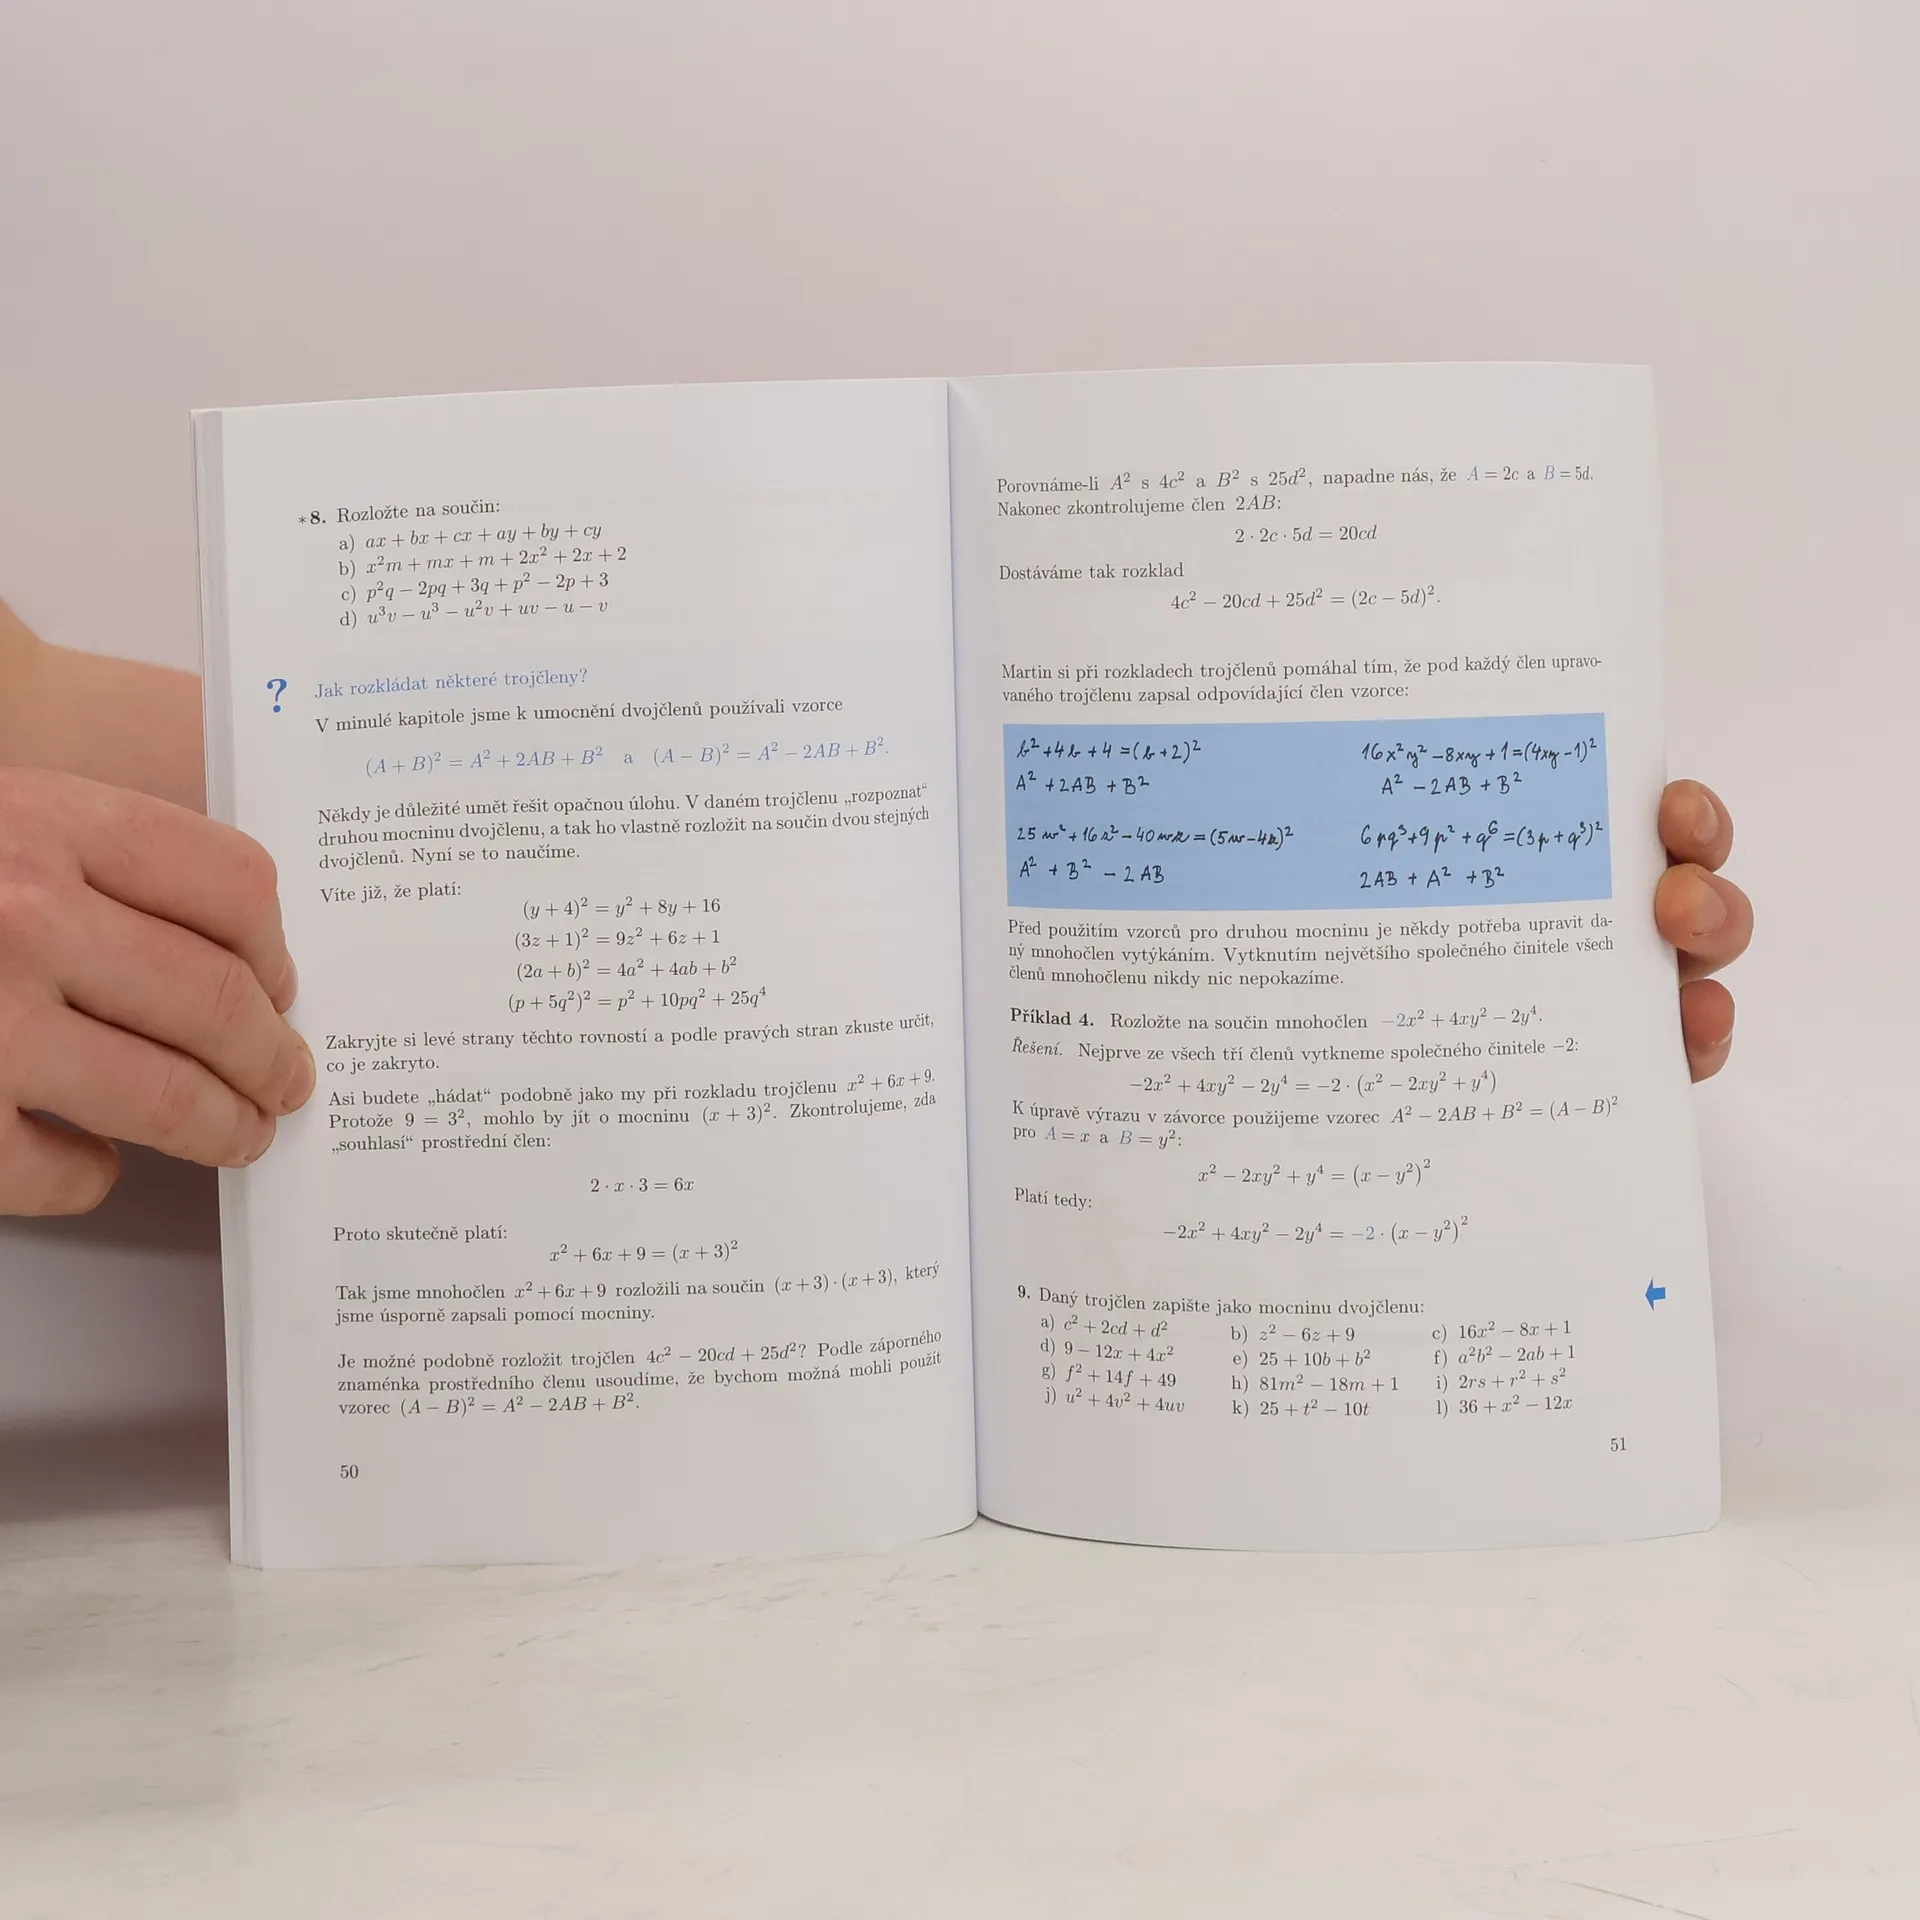 *8. Rozložte na součin:
a) ax + bx + cx + ay + by + cy
b) x²m + mx + m + 2x² + 2x + 2
c) p²q − 2pq + 3q + p² − 2p + 3
d) u³v − u³ − u²v + uv − u − v
? Jak rozkládat některé trojčleny?
V minulé kapitole jsme k umocnění dvojčlenů používali vzorce
(A + B)² = A² + 2AB + B² a (A − B)² = A² − 2AB + B².
Někdy je důležité umět řešit opačnou úlohu. V daném trojčlenu „rozpoznat“
druhou mocninu dvojčlenu, a tak ho vlastně rozložit na součin dvou stejných
dvojčlenů. Nyní se to naučíme.
Víte již, že platí:
(y + 4)² = y² + 8y + 16
(3z + 1)² = 9z² + 6z + 1
(2a + b)² = 4a² + 4ab + b²
(p + 5q²)² = p² + 10pq² + 25q⁴
Zakryjte si levé strany těchto rovností a podle pravých stran zkuste určit,
co je zakryto.
Asi budete „hádat“ podobně jako my při rozkladu trojčlenu x² + 6x + 9.
Protože 9 = 3², mohlo by jít o mocninu (x + 3)². Zkontrolujeme, zda
„souhlasí“ prostřední člen:
2 · x · 3 = 6x
Proto skutečně platí:
x² + 6x + 9 = (x + 3)²
Tak jsme mnohočlen x² + 6x + 9 rozložili na součin (x + 3) · (x + 3), který
jsme úsporně zapsali pomocí mocniny.
Je možné podobně rozložit trojčlen 4c² − 20cd + 25d²? Podle záporného
znaménka prostředního členu usoudíme, že bychom možná mohli použít
vzorec (A − B)² = A² − 2AB + B².
50
Porovnáme-li A² s 4c² a B² s 25d², napadne nás, že A = 2c a B = 5d.
Nakonec zkontrolujeme člen 2AB:
2 · 2c · 5d = 20cd
Dostáváme tak rozklad
4c² − 20cd + 25d² = (2c − 5d)².
Martin si při rozkladech trojčlenů pomáhal tím, že pod každý člen upravo-
vaného trojčlenu zapsal odpovídající člen vzorce:
b² + 4b + 4 = (b + 2)² 16x²y² − 8xy + 1 = (4xy − 1)²
A² + 2AB + B² A² − 2AB + B²
25w² + 16z² − 40wz = (5w − 4z)² 6pq³ + 9p² + q⁶ = (3p + q³)²
A² + B² − 2AB 2AB + A² + B²
Před použitím vzorců pro druhou mocninu je někdy potřeba upravit da-
ný mnohočlen vytýkáním. Vytknutím největšího společného činitele všech
členů mnohočlenu nikdy nic nepokazíme.
Příklad 4. Rozložte na součin mnohočlen −2x² + 4xy² − 2y⁴.
Řešení. Nejprve ze všech tří členů vytkneme společného činitele −2:
−2x² + 4xy² − 2y⁴ = −2 · (x² − 2xy² + y⁴)
K úpravě výrazu v závorce použijeme vzorec A² − 2AB + B² = (A − B)²
pro A = x a B = y²:
x² − 2xy² + y⁴ = (x − y²)²
Platí tedy:
−2x² + 4xy² − 2y⁴ = −2 · (x − y²)²
9. Daný trojčlen zapište jako mocninu dvojčlenu:
a) c² + 2cd + d² b) z² − 6z + 9 c) 16x² − 8x + 1
d) 9 − 12x + 4x² e) 25 + 10b + b² f) a²b² − 2ab + 1
g) f² + 14f + 49 h) 81m² − 18m + 1 i) 2rs + r² + s²
j) u² + 4v² + 4uv k) 25 + t² − 10t l) 36 + x² − 12x
51